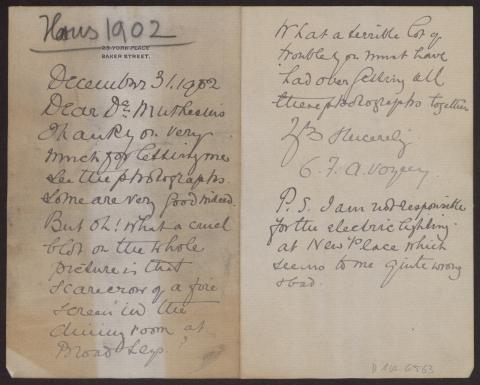 Haus 1902
23, YORK PLACE
BAKER STREET.
December 31. 1902
Dear Dr. Muthesius
Thank you very
much for letting me
see the photographs.
Some are very good indeed.
But Oh! What a cruel
blot on the whole
picture is that
scarecrow of a fire
screen in the
dining room at
Broad Leys!
What a terrible lot of
trouble you must have
had over getting all
these photographs together
Yrs Sincerely
C. F. A. Voysey
P.S. I am not responsible
for the electric lighting
at New Place which
seems to me quite wrong
& bad.